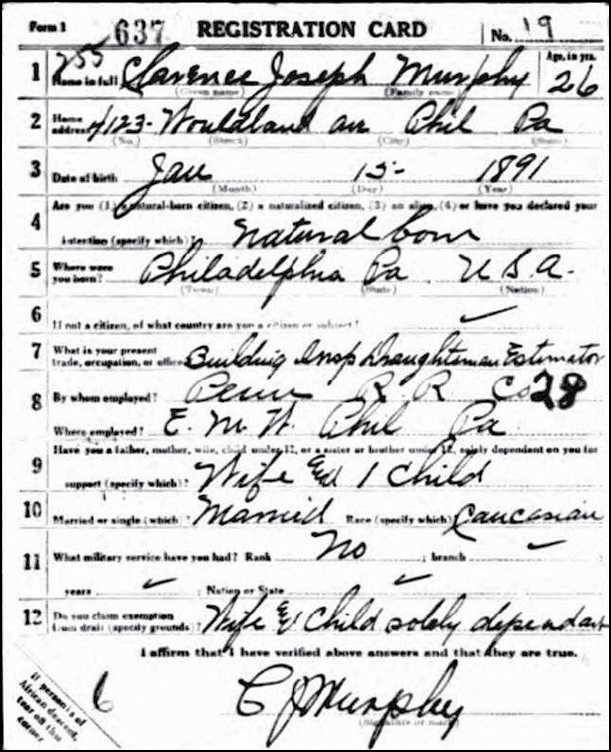 Form 1 637 REGISTRATION CARD No. 19
255
1 Name in full Clarence Joseph Murphy 26
(Given name) (Family name) Age, in yrs.
2 Home address 4123- Woodland av Phil Pa
(No.) (Street) (City) (State)
3 Date of birth Jan 15- 1891
(Month) (Day) (Year)
4 Are you (1) a natural-born citizen, (2) a naturalized citizen, (3) an alien, (4) or have you declared your
intention (specify which)? Natural born
5 Where were you born? Philadelphia Pa. U.S.A.
(Town) (State) (Nation)
6 If not a citizen, of what country are you a citizen or subject? ✓
7 What is your present trade, occupation, or office? Building Insp Draughtsman Estimator
8 By whom employed? Penn R. R. Co 28
Where employed? E. M. W. Phil Pa
9 Have you a father, mother, wife, child under 12, or a sister or brother under 12, solely dependent on you for
support (specify which)? Wife & 1 child
10 Married or single (which)? Married Race (specify which)? Caucasian
11 What military service have you had? Rank No ; branch ✓
years ✓ ; Nation or State ✓
12 Do you claim exemption from draft (specify grounds)? Wife & Child solely dependant
I affirm that I have verified above answers and that they are true.
6 C J Murphy
(Signature or mark)
If person is of
African descent,
tear off this
corner